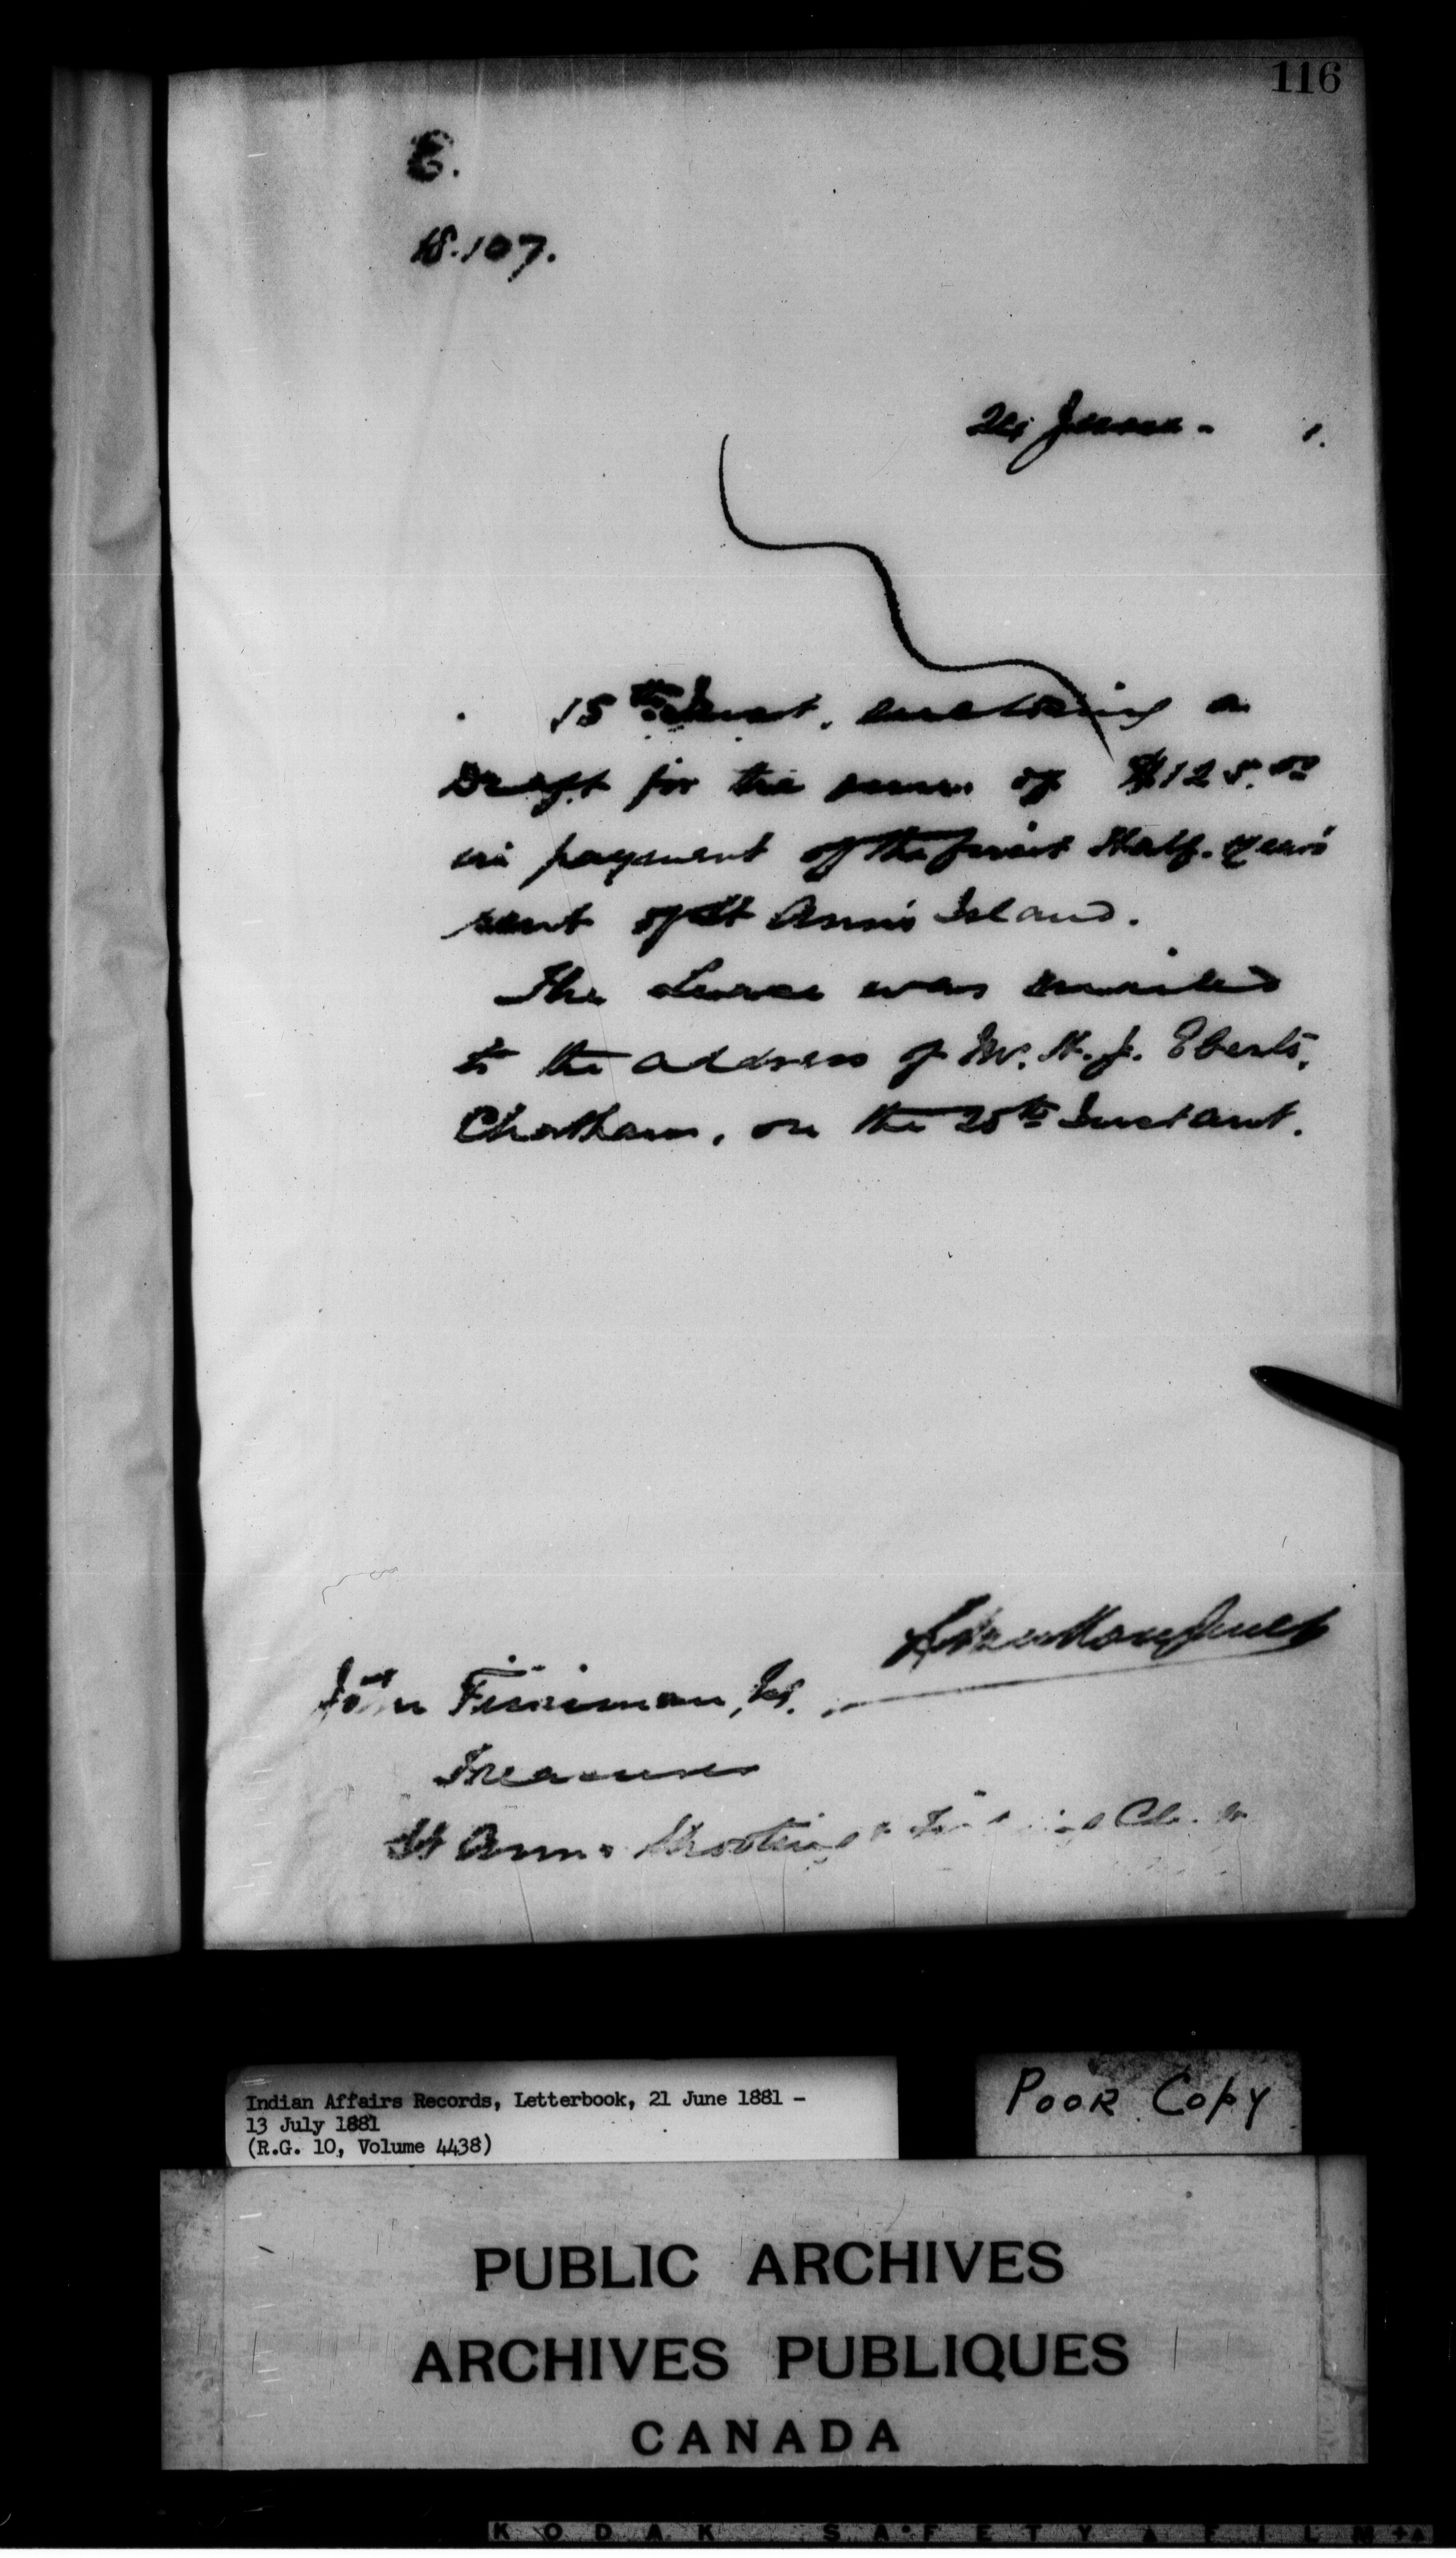 116
E.
18.107.
June - 1.
15th Inst. enclosing a
Draft for the sum of $125.00
in payment of the first Half-year's
rent of St Ann's Island.
The Lease was mailed
to the address of Mr. H. J. Eberts,
Chatham, on the 25th Instant.
John
Treasurer
St Anns Shooting &
Indian Affairs Records, Letterbook, 21 June 1881 -
13 July 1881
(R.G. 10, Volume 4438)
POOR COPY
PUBLIC ARCHIVES
ARCHIVES PUBLIQUES
CANADA
KODAK SAFETY FILM